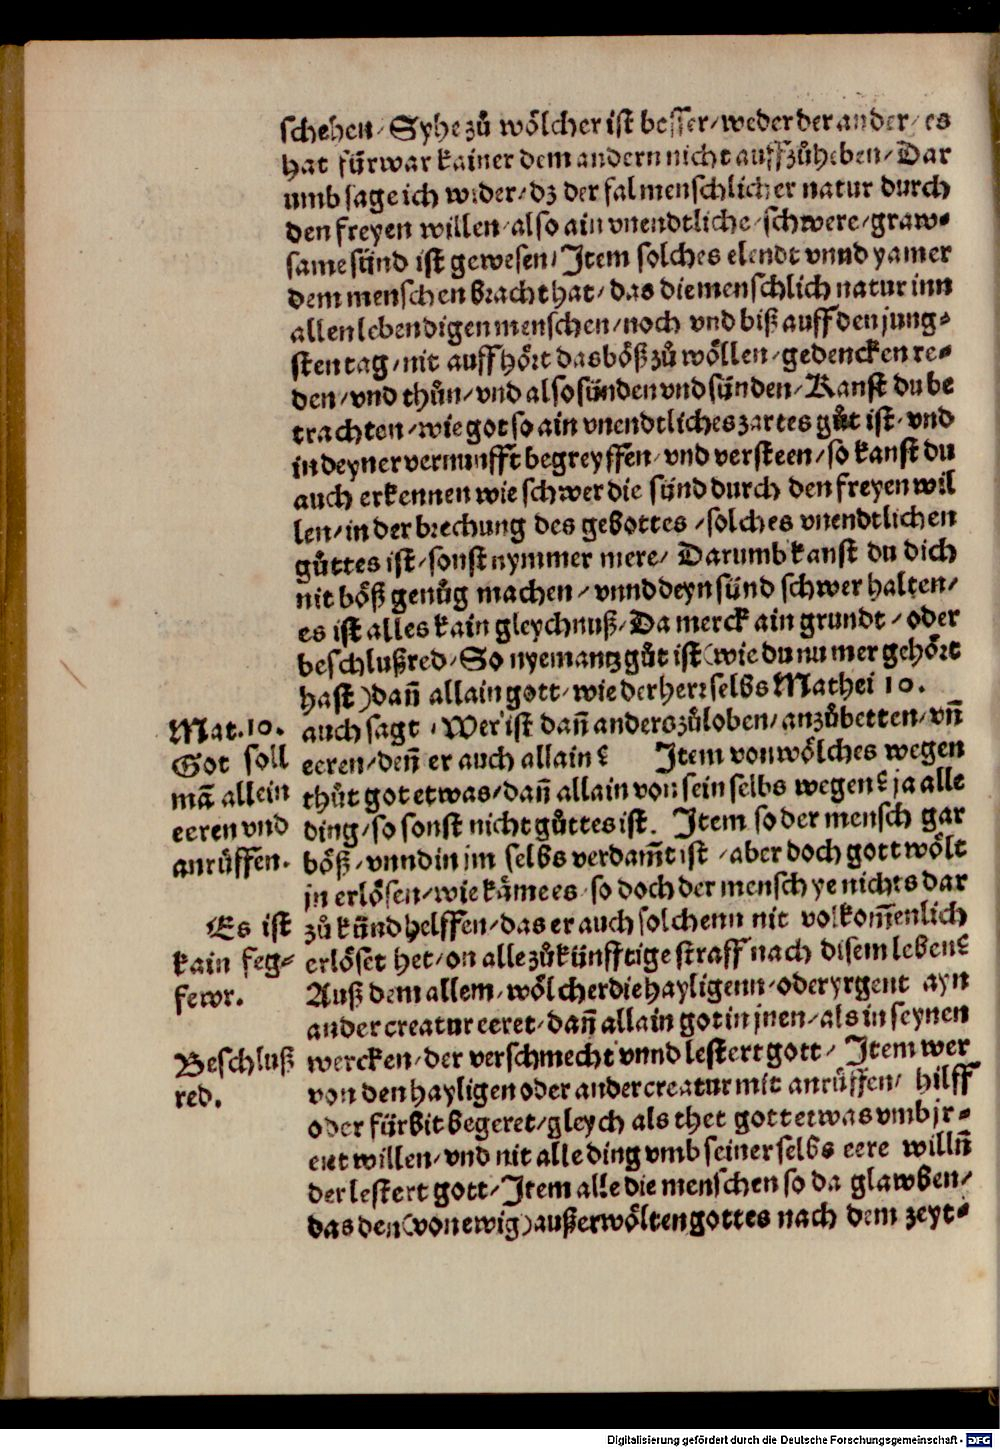 schehen / Syhe zů wölcher ist besser / weder der ander / es
hat fürwar kainer dem andern nicht auffzůheben / Dar
umb sage ich wider / dz der fal menschlicher natur durch
den freyen willen / also ain vnendtliche / schwere / graw⸗
same sünd ist gewesen / Item solches elendt vnnd yamer
dem menschen bracht hat / das die menschlich natur inn
allen lebendigen menschen / noch vnd biß auff den jung⸗
sten tag / nit auffhört das böß zů wöllen / gedencken re⸗
den / vnd thůn / vnd also sünden vnd sünden / Kanst du be
trachten / wie got so ain vnendtliches zartes gůt ist / vnd
in deyner vernunfft begreyffen / vnd versteen / so kanst du
auch erkennen wie schwer die sünd durch den freyen wil
len / in der brechung des gebottes / solches vnendtlichen
gůttes ist / sonst nymmer mere / Darumb kanst du dich
nit böß genůg machen / vnnd deyn sünd schwer halten /
es ist alles kain gleychnuß / Da merck ain grundt / oder
beschlußred / So nyemantz gůt ist (wie du nu mer gehört
hast) dañ allain gott / wie der herr selbs Mathei 10.
auch sagt / Wer ist dañ anders zů loben / anzůbetten / vñ
eeren / deñ er auch allain? Item von wölches wegen
thůt got etwas / dañ allain von sein selbs wegen? ja alle
ding / so sonst nicht gůttes ist. Item so der mensch gar
böß / vnnd in jm selbs verdam̃t ist / aber doch gott wölt
jn erlösen / wie käme es / so doch der mensch ye nichts dar
zů künd helffen / das er auch solchenn nit volkom̃enlich
erlöset het / on alle zůkünfftige straff nach disem leben?
Auß dem allem / wölcher die hayligenn / oder yrgent ayn
ander creatur eeret / dañ allain got in jnen / als in seynen
wercken / der verschmecht vnnd lestert gott / Item wer
von den hayligen oder ander creatur mit anrüffen / hilff
oder fürbit begeret / gleych als thet gott etwas vmb jr⸗
ent willen / vnd nit alle ding vmb seiner selbs eere willñ
der lestert gott / Item alle die menschen so da glawben /
das den (von ewig) außerwölten gottes nach dem zeyt⸗
Mat. 10.
Got soll
mã allein
eeren vnd
anrüffen.
Es ist
kain feg⸗
fewr.
Beschluß
red.
Digitalisierung gefördert durch die Deutsche Forschungsgemeinschaft - DFG